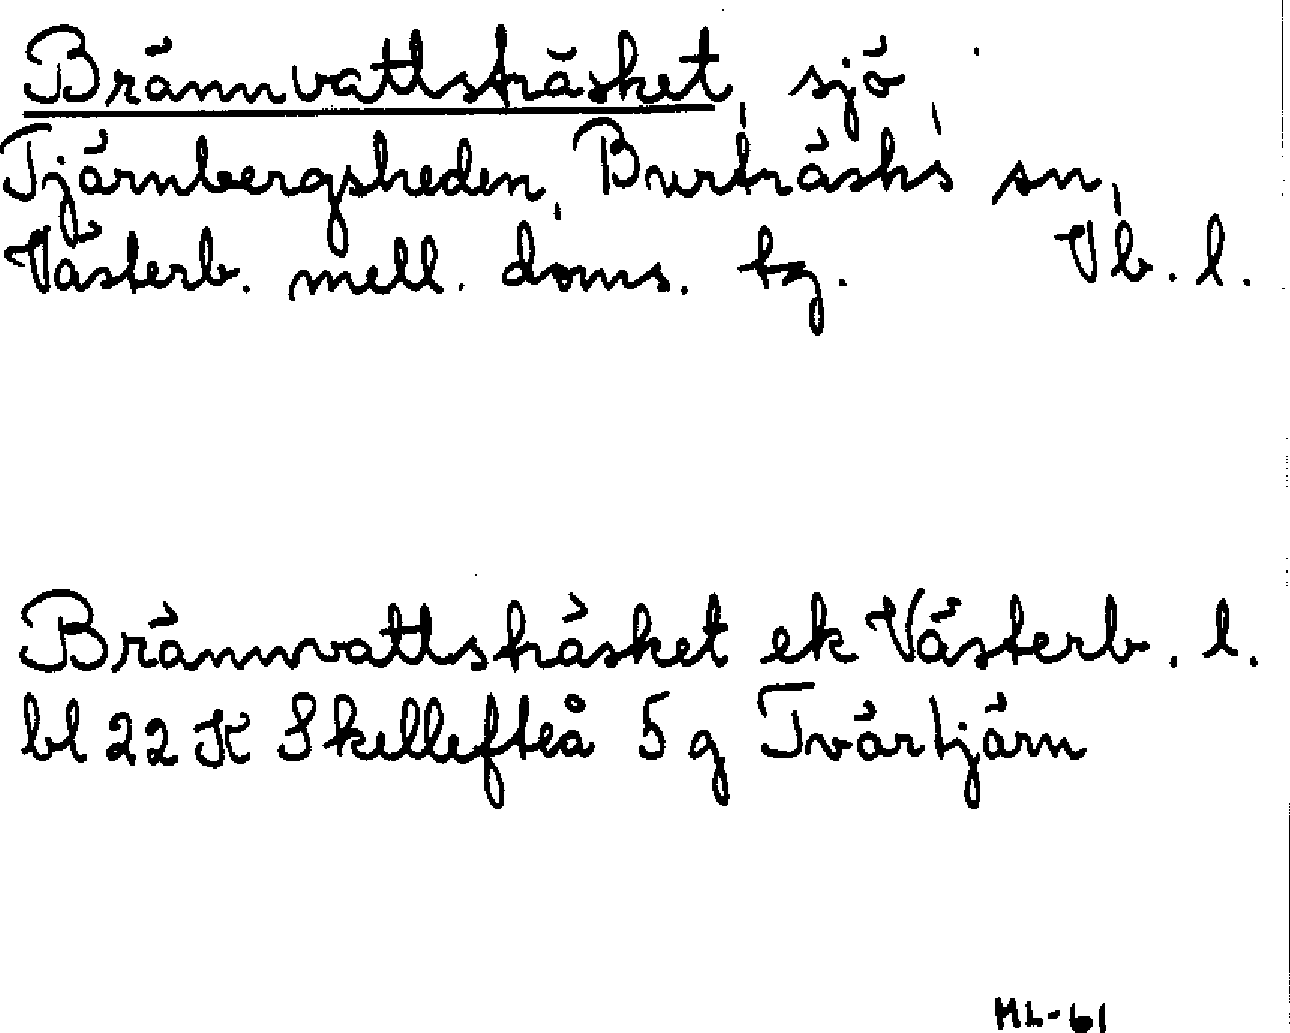 Brännvattsträsket, sjö,
Tjärnbergsheden, Burträsks sn,
Västerb. mell. doms. tg. Vb. l.
Brännvattsträsket ek Västerb. l.
bl 22 K Skellefteå 5 g Tvärtjärn
ML-61